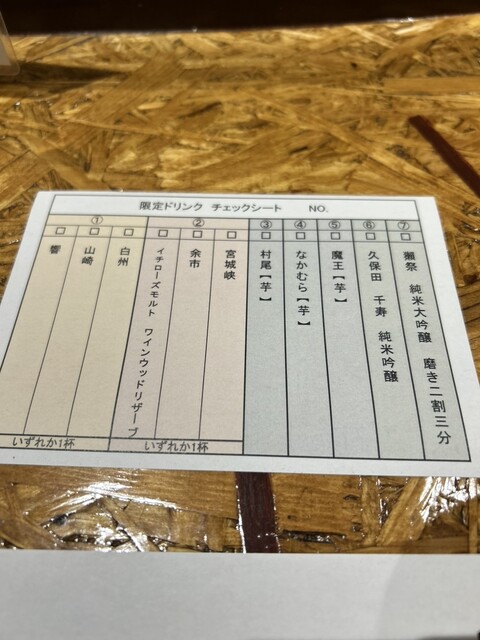 限定ドリンク チェックシート NO.
① ② ③ ④ ⑤ ⑥ ⑦
響
山崎
白州
イチローズモルト ワインウッドリザーブ
余市
宮城峡
村尾【芋】
なかむら【芋】
魔王【芋】
久保田 千寿 純米吟醸
獺祭 純米大吟醸 磨き二割三分
いずれか1杯
いずれか1杯